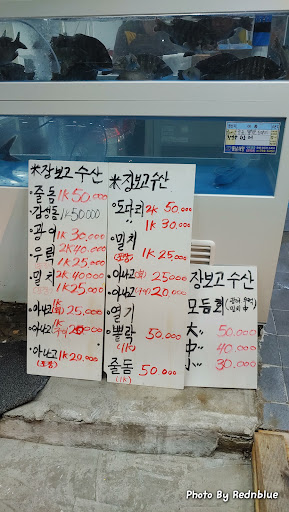 ※장보고수산
줄돔 1K 50.000
감성돔 1K 50000
광어 1K 30.000
우럭 2K 40.000
1K 25.000
밀치 2K 40000
1K 25.000
아나고 1K 25.000
아나고 25.000
아나고 1K 20.000
※장보고수산
도다리 2K 50.000
1K 30.000
밀치 1K 25.000
아나고 25.000
아나고 20.000
열기
뽈락 50.000
(1K)
줄돔 50.000
(1K)
장보고수산
모듬회
大" 50.000
中" 40.000
小" 30.000
Photo By Rednblue